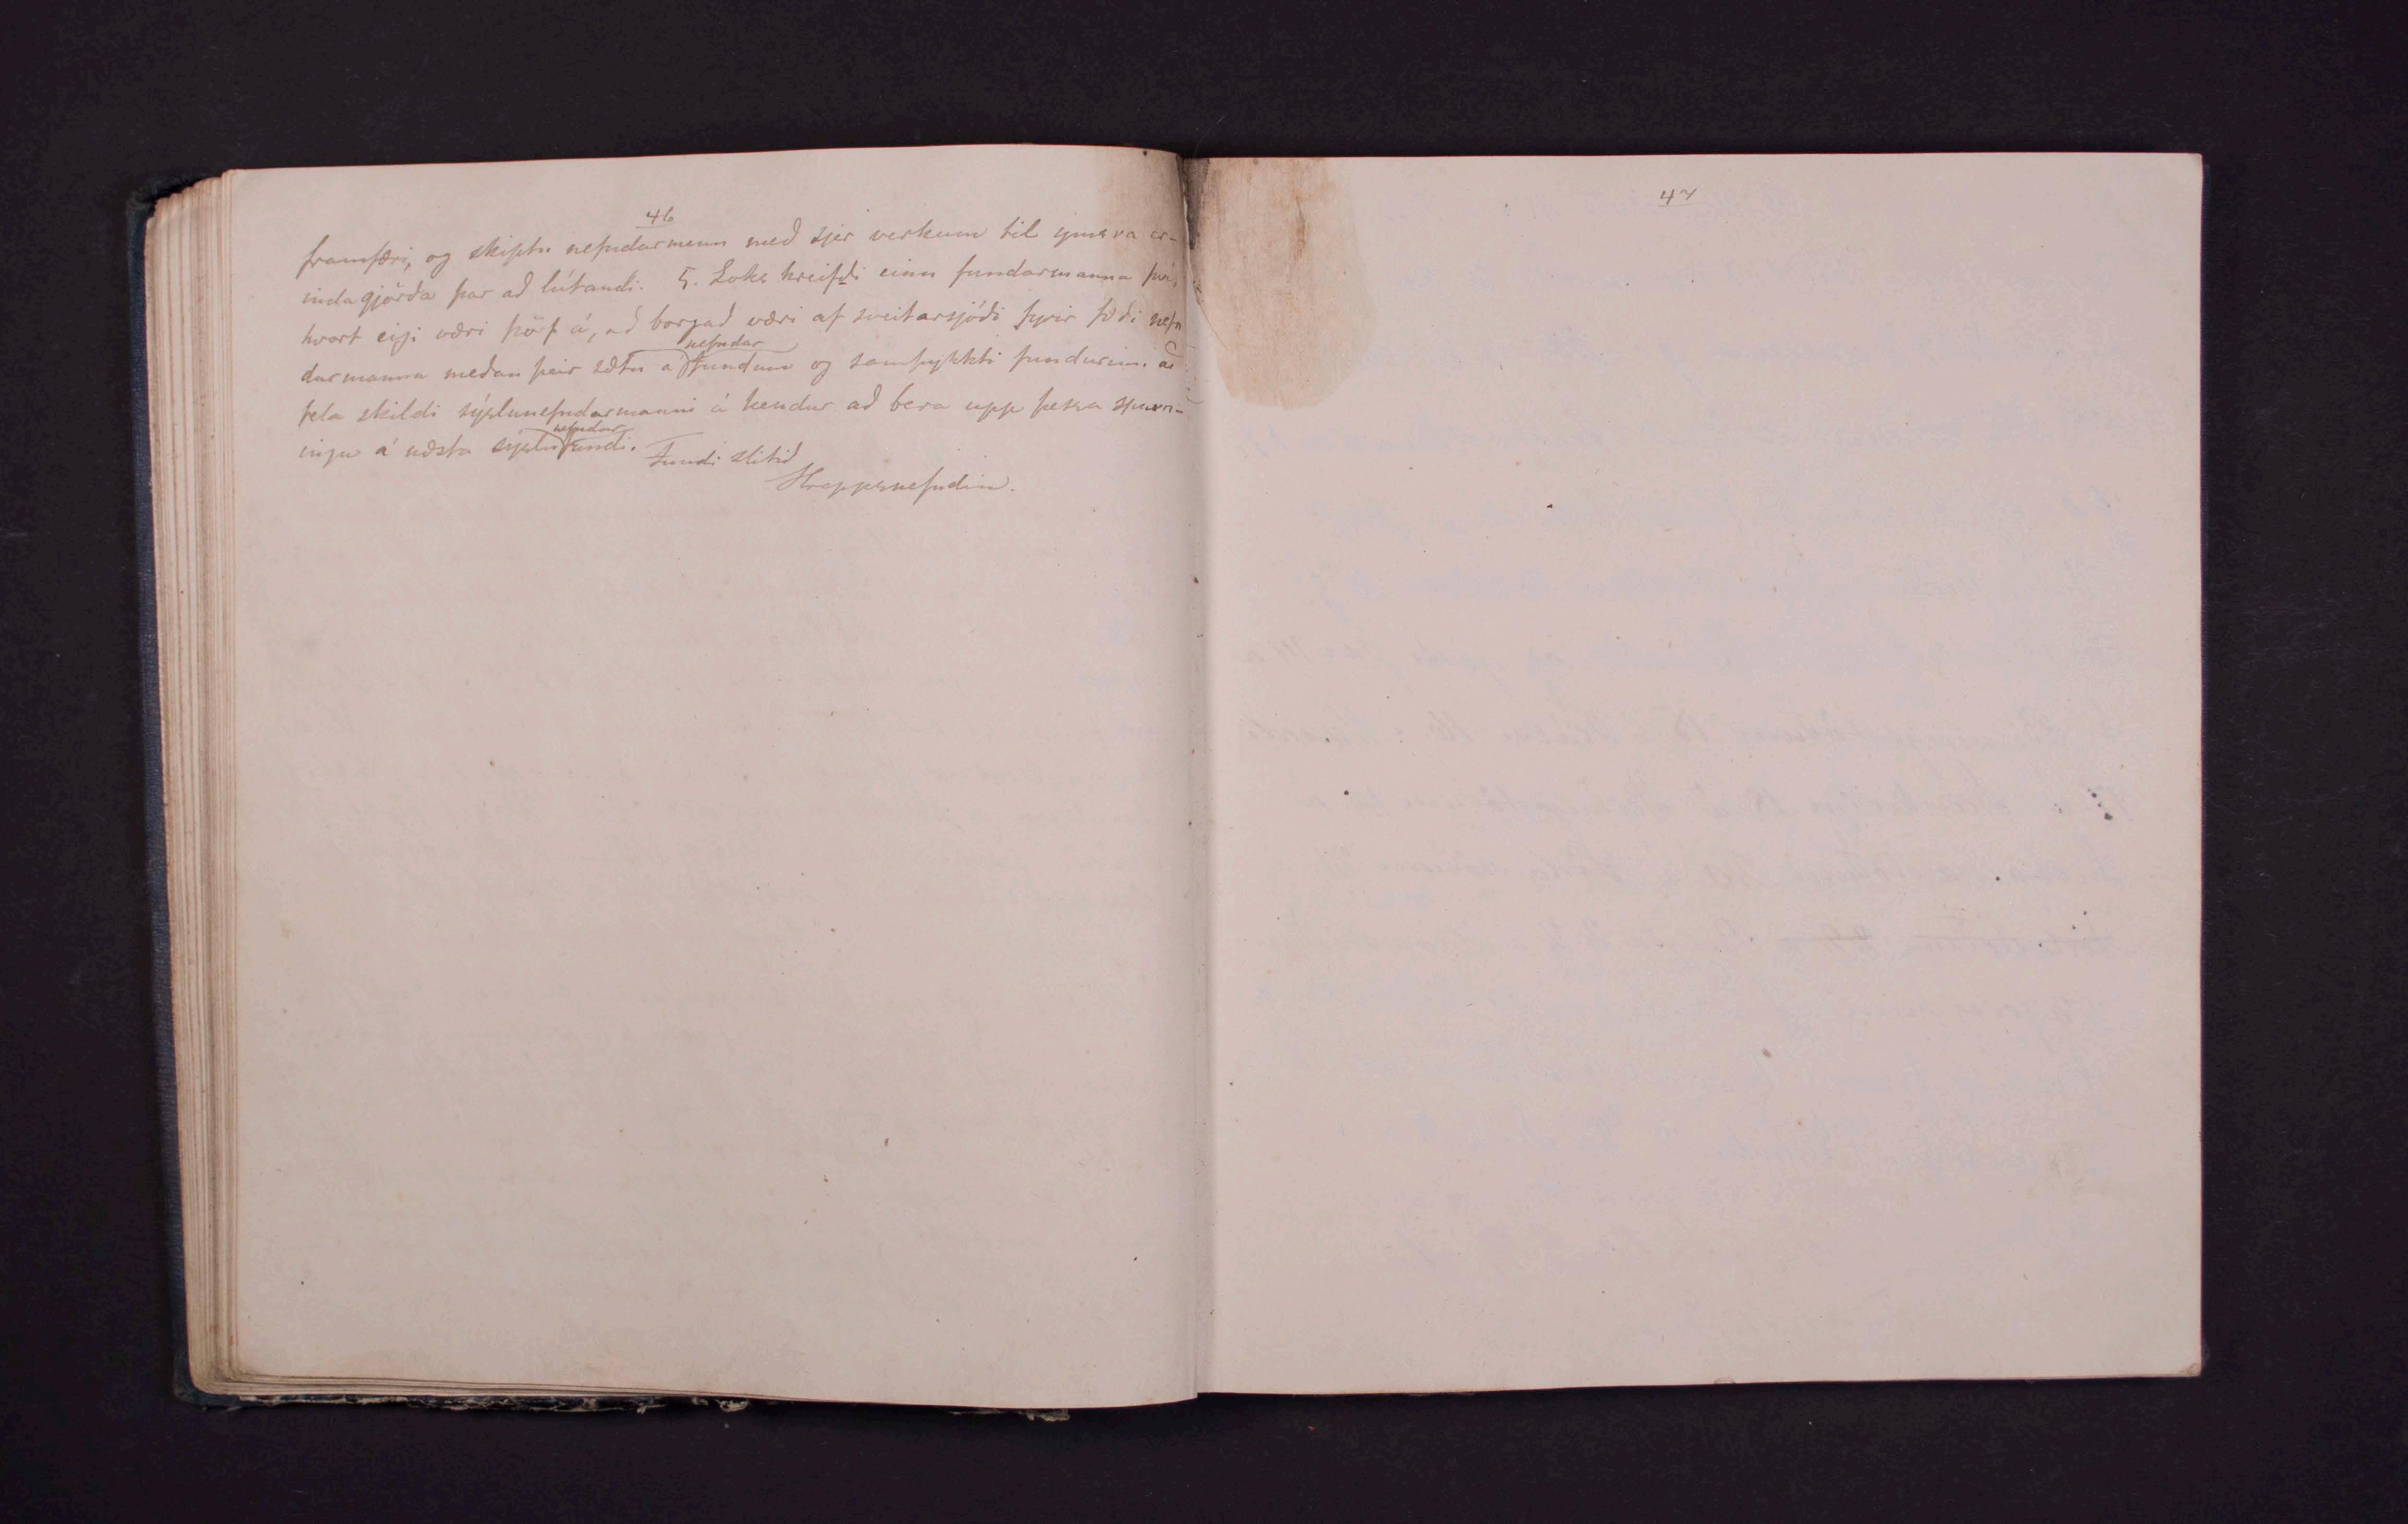 46
framfæri, og skiptu nefndarmenn með sjer verkum til ýmsra er-
indagjörða þar að lútandi. 5. Loks hreifði einn fundarmanna því,
hvort eigi væri þörf á, að borgað væri af sveitarsjóði fyrir fæði nefn
darmanna meðan þeir sætu á nefndar fundum og samþykkti fundurinn að
fela skildi sýslunefndarmanni á hendur að bera upp þessa spurn-
ingu á næsta sýslunefndar fundi. Fundi slitið
Hreppsnefndin.
47